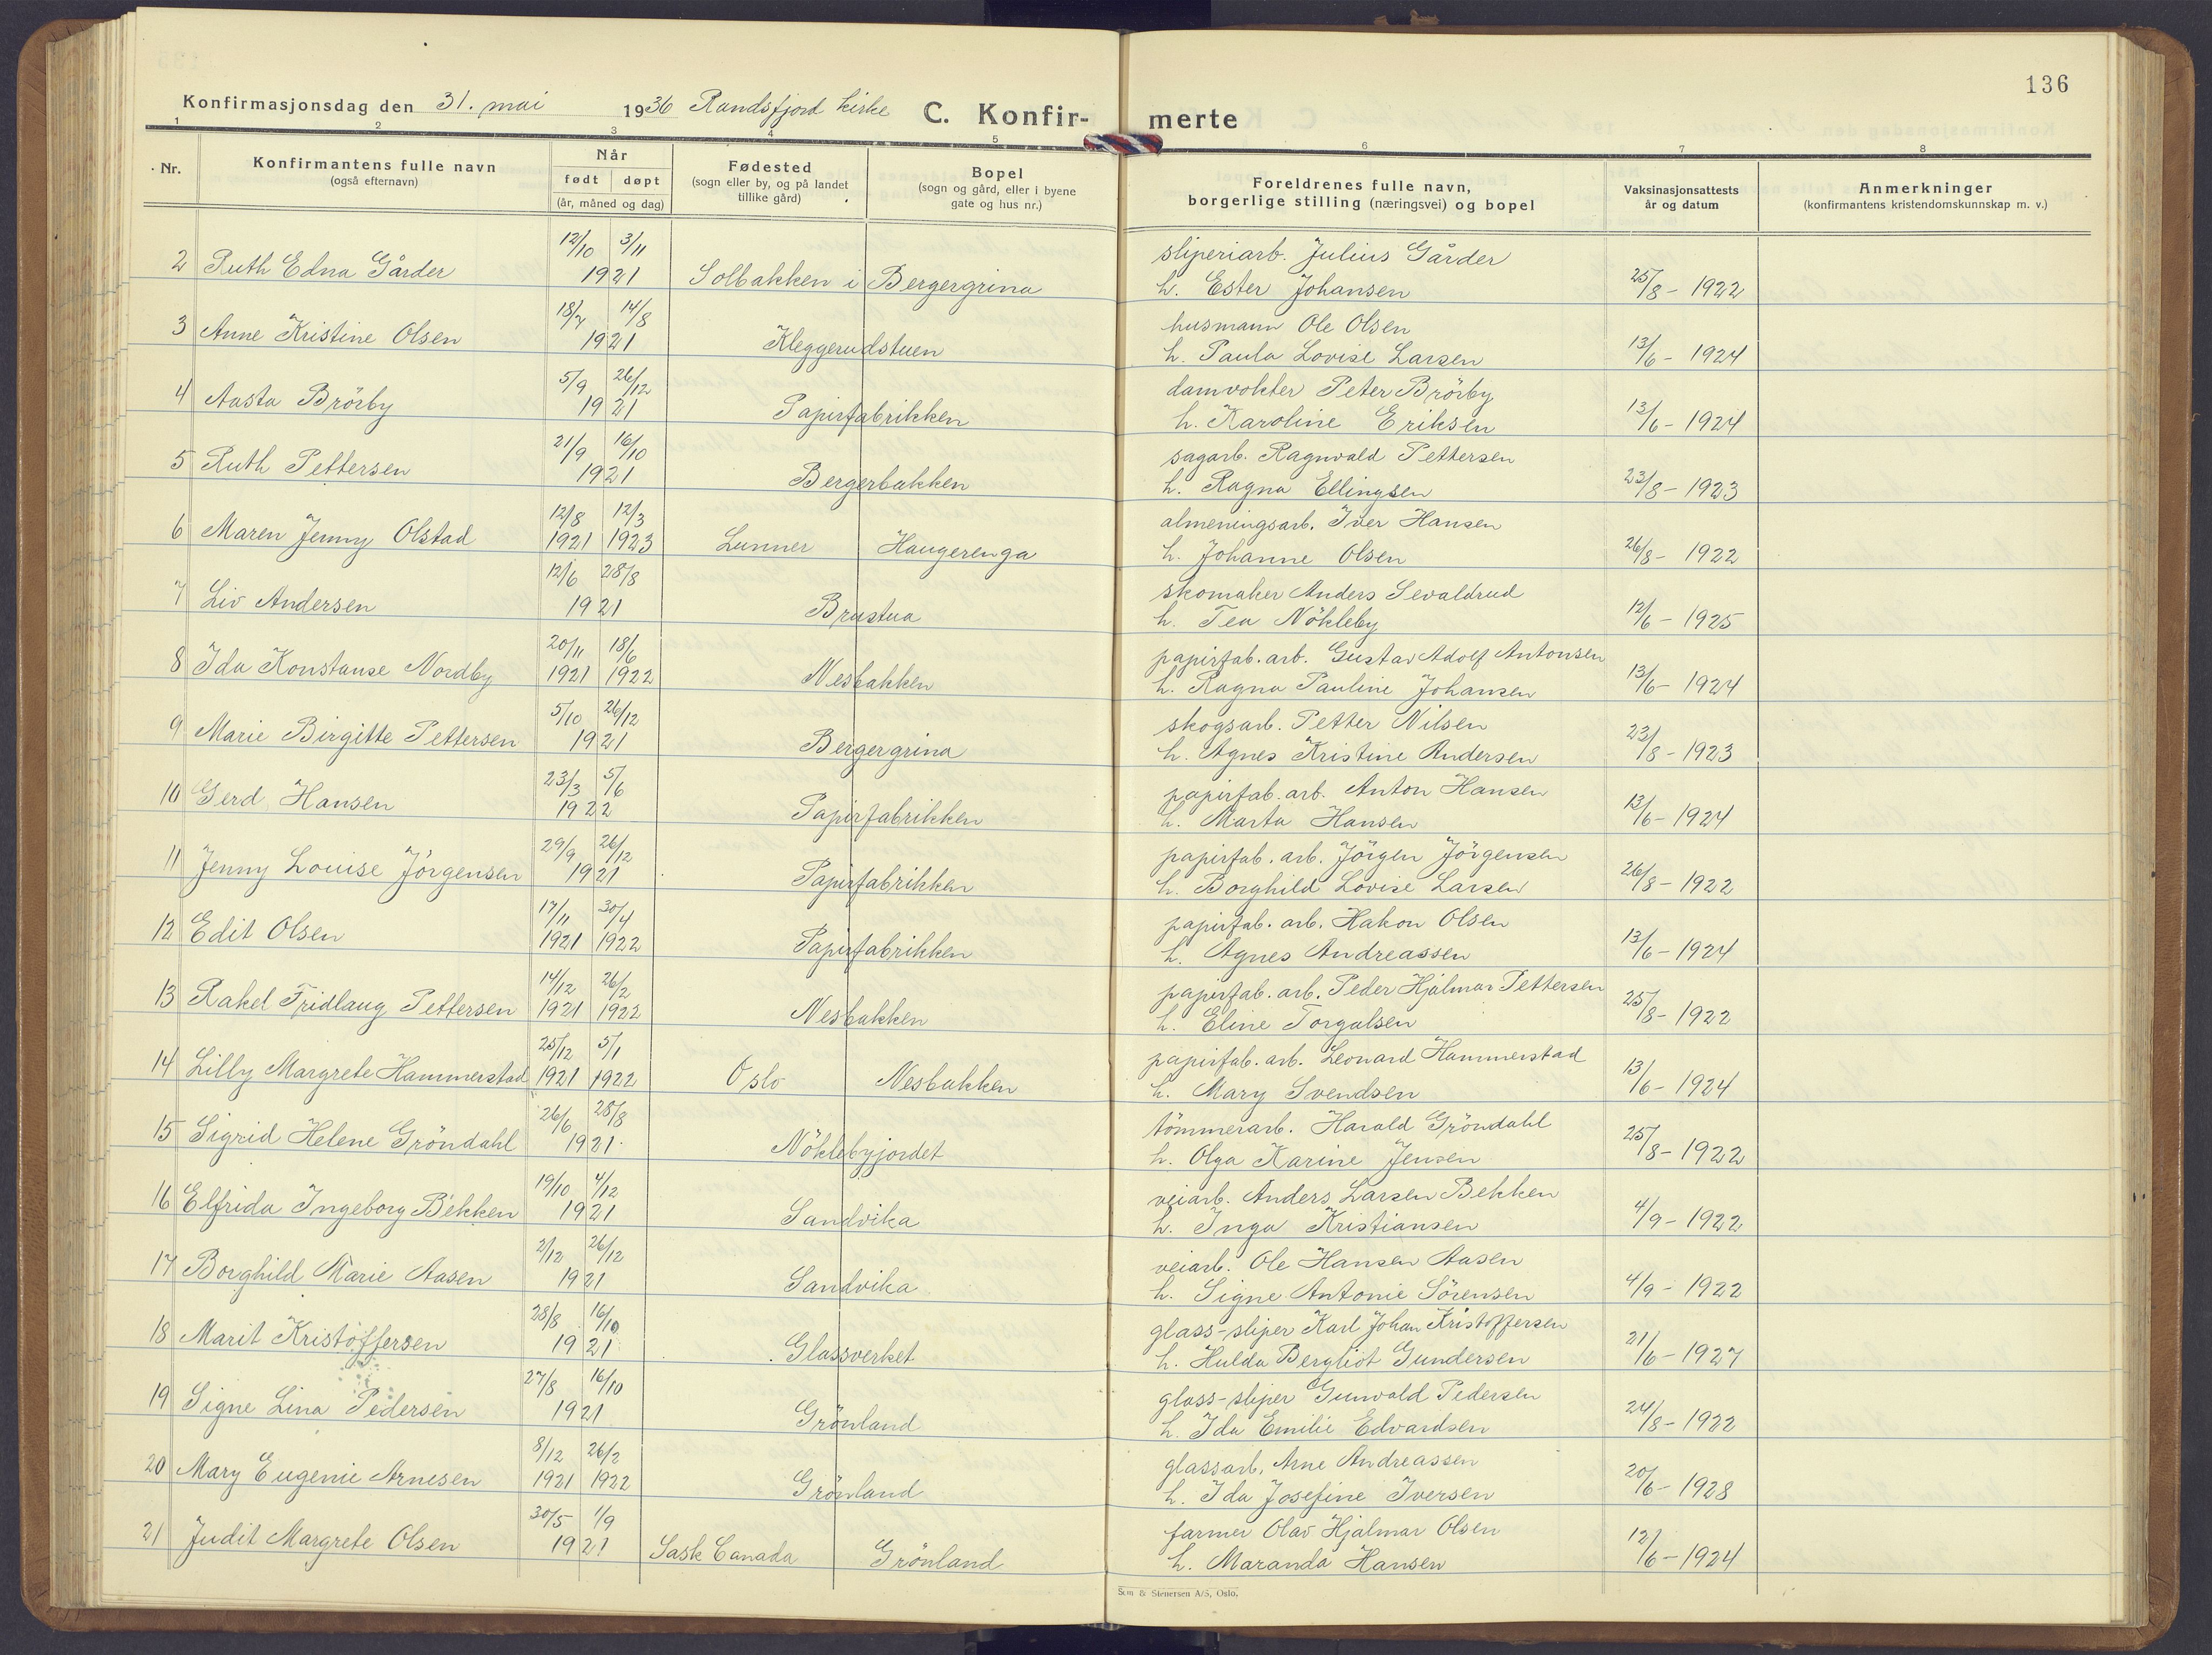 136
Konfirmasjonsdag den 31. mai 1936 Randsfjord kirke C. Konfir- merte
1 2 3 4 5 6 7 8
Nr. Konfirmantens fulle navn (også efternavn) Når født døpt (år, måned og dag) Fødested (sogn eller by, og på landet tillike gård) Bopel (sogn og gård, eller i byene gate og hus nr.) Foreldrenes fulle navn, borgerlige stilling (næringsvei) og bopel Vaksinasjonsattests år og datum Anmerkninger (konfirmantens kristendomskunnskap m. v.)
12/10 3/11 sliperiarb. Julius Gårder
2 Ruth Edna Gårder 1921 Solbakken i Bergergrina h. Ester Johansen 25/8 - 1922
18/7 14/8 husmann Ole Olsen
3 Anne Kristine Olsen 1921 Kleggerudstuen h. Paula Lovise Larsen 13/6 - 1924
5/9 26/12 damvokter Peter Brörby
4 Aasta Brörby 1921 Papirfabrikken h. Karoline Eriksen 13/6 - 1924
21/9 16/10 sagarb. Ragnvald Pettersen
5 Ruth Pettersen 1921 Bergerbakken h. Ragna Ellingsen 23/8 - 1923
12/8 12/3 almeningsarb. Iver Hansen
6 Maren Jenny Olstad 1921 1923 Lunner Haugerenga h. Johanne Olsen 26/8 - 1922
12/6 28/8 skomaker Anders Sevaldrud
7 Liv Andersen 1921 Brustua h. Tea Nökleby 12/6 - 1925
20/11 18/6 papirfab. arb. Gustav Adolf Antonsen
8 Ida Konstanse Nordby 1921 1922 Nesbakken h. Ragna Pauline Johansen 13/6 - 1924
5/10 26/12 skogsarb. Petter Nilsen
9 Marie Birgitte Pettersen 1921 Bergergrina h. Agnes Kristine Andersen 23/8 - 1923
23/3 5/6 papirfab. arb. Anton Hansen
10 Gerd Hansen 1922 Papirfabrikken h. Marta Hansen 13/6 - 1924
29/9 26/12 papirfab. arb. Jörgen Jörgensen
11 Jenny Louise Jörgensen 1921 Papirfabrikken h. Borghild Lovise Larsen 26/8 - 1922
17/11 30/4 papirfab. arb. Hakon Olsen
12 Edit Olsen 1921 1922 Papirfabrikken h. Agnes Andreassen 13/6 - 1924
14/12 26/2 papirfab. arb. Peder Hjalmar Pettersen
13 Rakel Fridlaug Pettersen 1921 1922 Nesbakken h. Eline Torgalsen 25/8 - 1922
25/12 5/1 papirfab. arb. Leonard Hammerstad
14 Lilly Margrete Hammerstad 1921 1922 Oslo Nesbakken h. Mary Svendsen 13/6 - 1924
26/6 28/8 tömmerarb. Harald Gröndahl
15 Sigrid Helene Gröndahl 1921 Nöklebyjordet h. Olga Karine Jensen 25/8 - 1922
19/10 4/12 veiarb. Anders Larsen Bekken
16 Elfrida Ingeborg Bekken 1921 Sandvika h. Inga Kristiansen 4/9 - 1922
2/12 26/12 veiarb. Ole Hansen Aasen
17 Borghild Marie Aasen 1921 Sandvika h. Signe Antonie Sörensen 4/9 - 1922
28/8 16/10 glass-sliper Karl Johan Kristoffersen
18 Marit Kristoffersen 1921 Glassverket h. Hulda Bergliot Gundersen 21/6 - 1927
27/8 16/10 glass-sliper Gunvald Pedersen
19 Signe Lina Pedersen 1921 Grönland h. Ida Emilie Edvardsen 24/8 - 1922
8/12 26/2 glassarb. Arne Andreassen
20 Mary Eugenie Arnesen 1921 1922 Grönland h. Ida Josefine Iversen 20/6 - 1928
30/5 1/9 farmer Olav Hjalmar Olsen
21 Judit Margrete Olsen 1921 Sask Canada Grönland h. Maranda Hansen 12/6 - 1924
Sem & Stenersen A/S, Oslo.